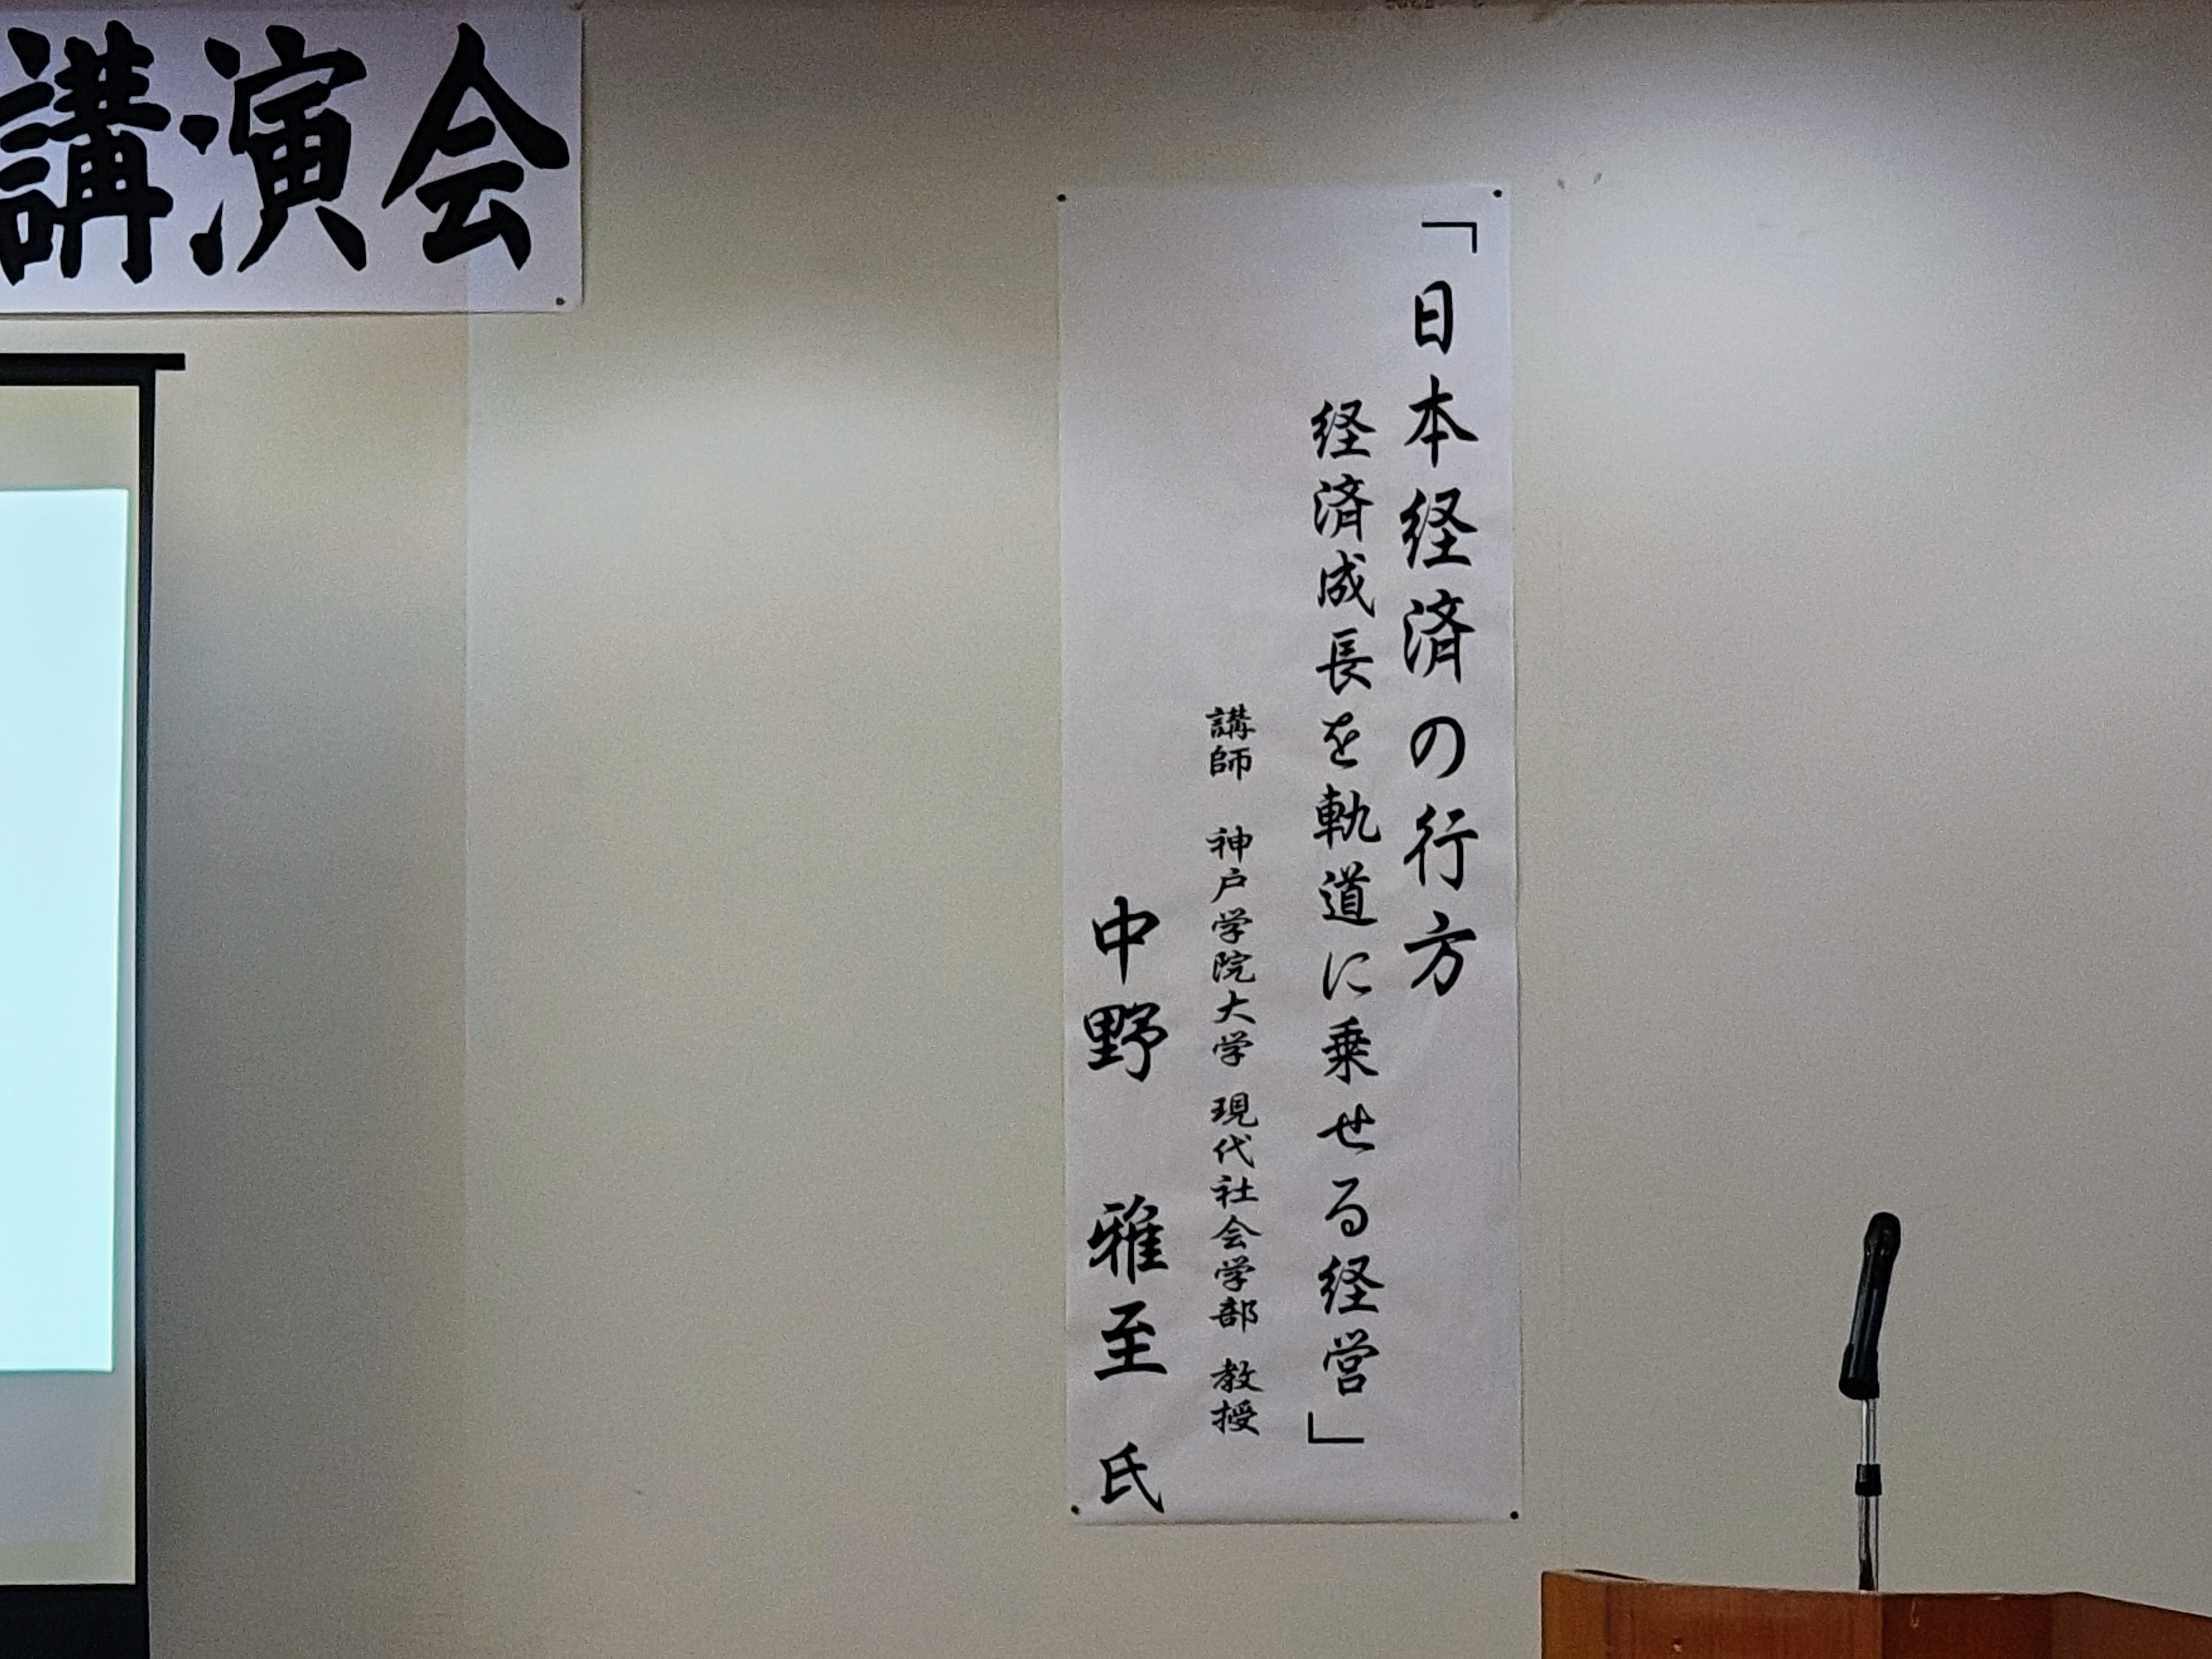 講演会
「日本経済の行方
経済成長を軌道に乗せる経営」
講師 神戸学院大学 現代社会学部 教授
中野 雅至 氏